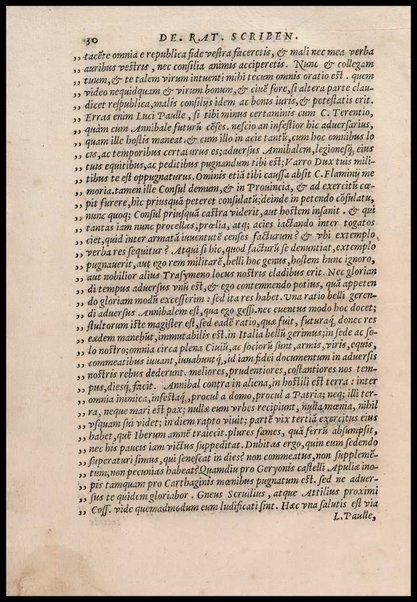 30 DE. RAT. SCRIBEN.
,, tacēte omnia e republica fide vestra faceretis, & mali nec mea verba
,, auribus vestris, nec consilia animis acciperetis. Nunc & collegam
,, tuum, & te talem virum intuenti mihi tecum omnis oratio est. quem
,, video nequidquam & virum bonum, & ciuē fore, si altera parte clau-
,, dicet respublica, malis consilijs idem ac bonis iuris, & potestatis erit.
,, Erras enim Luci Paulle, si tibi minus certaminis cum C. Terentio,
,, quàm cum Annibale futurū cēses. nescio an infestior hic aduersarius,
,, quam ille hostis maneat & cum illo in acie tantū, cum hoc omnibus lo
,, cis, ac temporibus certaturus es; aduersus Annibalem, legionesq́; eius
,, tuis equitibus, ac peditibus pugnandum tibi est; Varro Dux tuis mili-
,, tibus te est oppugnaturus. Ominis etiā tibi caussa absit C. Flaminij me
,, moria. tamen ille Consul demum, & in Prouincia, & ad exercitū cœ-
,, pit furere, hic priusquā peteret consulatū; deinde in petendo cōsulatu,
,, nunc quoq; Consul priusquā castra viderit, aut hostem insanit. & qui
,, tantas iam nunc procellas, prælia, atq; acies iactando inter togatos
,, ciet, quid inter armatā iuuentutē censes facturum? & vbi extemplo
,, verba res sequitur? Atqui si hic, quod facturū se denuntiat, extemplo
,, pugnauerit, aut ego rem militarē, belli hoc genus, hostem hunc ignoro,
,, aut nobilior alius Trasymeno locus nostris cladibus erit. Nec glorian
,, di tempus aduersus vnū est, & ego contemnendo potius, quā appeten
,, do gloriam modū excesserim: sed ita res habet. Vna ratio belli geren-
,, di aduersus Annibalem est, qua ego gessi. nec euentus modo hoc docet;
,, stultorum iste magister est, sed eadē ratio, quæ fuit, futuraq́; donec res
,, eædem manebūt, immutabilis est. in Italia bellū gerimus; in sede ac so-
,, lo nostro; omnia circa plena Ciuiū, ac sociorū sunt, armis, viris, equis,
,, commeatibus iuuant, iuuabuntq́;, id iam fidei documentum in aduersis
,, nostris rebus dederunt. meliores, prudentiores, cōstantiores nos tem-
,, pus, diesq́; facit. Annibal contra in aliena, in hostili est terra: inter
,, omnia inimica, infestaq́;, procul a domo, procul a Patria; neq; illi ter-
,, ra, neque mari est pax; nullæ eum vrbes recipiunt, nulla mœnia, nihil
,, vsquam sui videt; in diem rapto viuit; partē vix tertiā exercitus eius
,, habet, quē Iberum amnē traiecit. plures fames, quā ferrū absumpsit,
,, nec his paucis iam victus suppeditat. Dubitas ergo, quin eum sedendo
,, superaturi simus, qui senescat in dies? non commeatus, non supplemē-
,, tum, non pecunias habeat? Quamdiu pro Geryonis castelli Apuliæ ino-
,, pis tamquam pro Carthaginis mœnibus pugnatum est. sed ne aduer-
,, sus te quidem gloriabor. Gneus Seruilius, atque Attilius proximi
,, Coss. vide quemadmodum eum ludificati sint. Hæc vna salutis est via
L. Paulle,